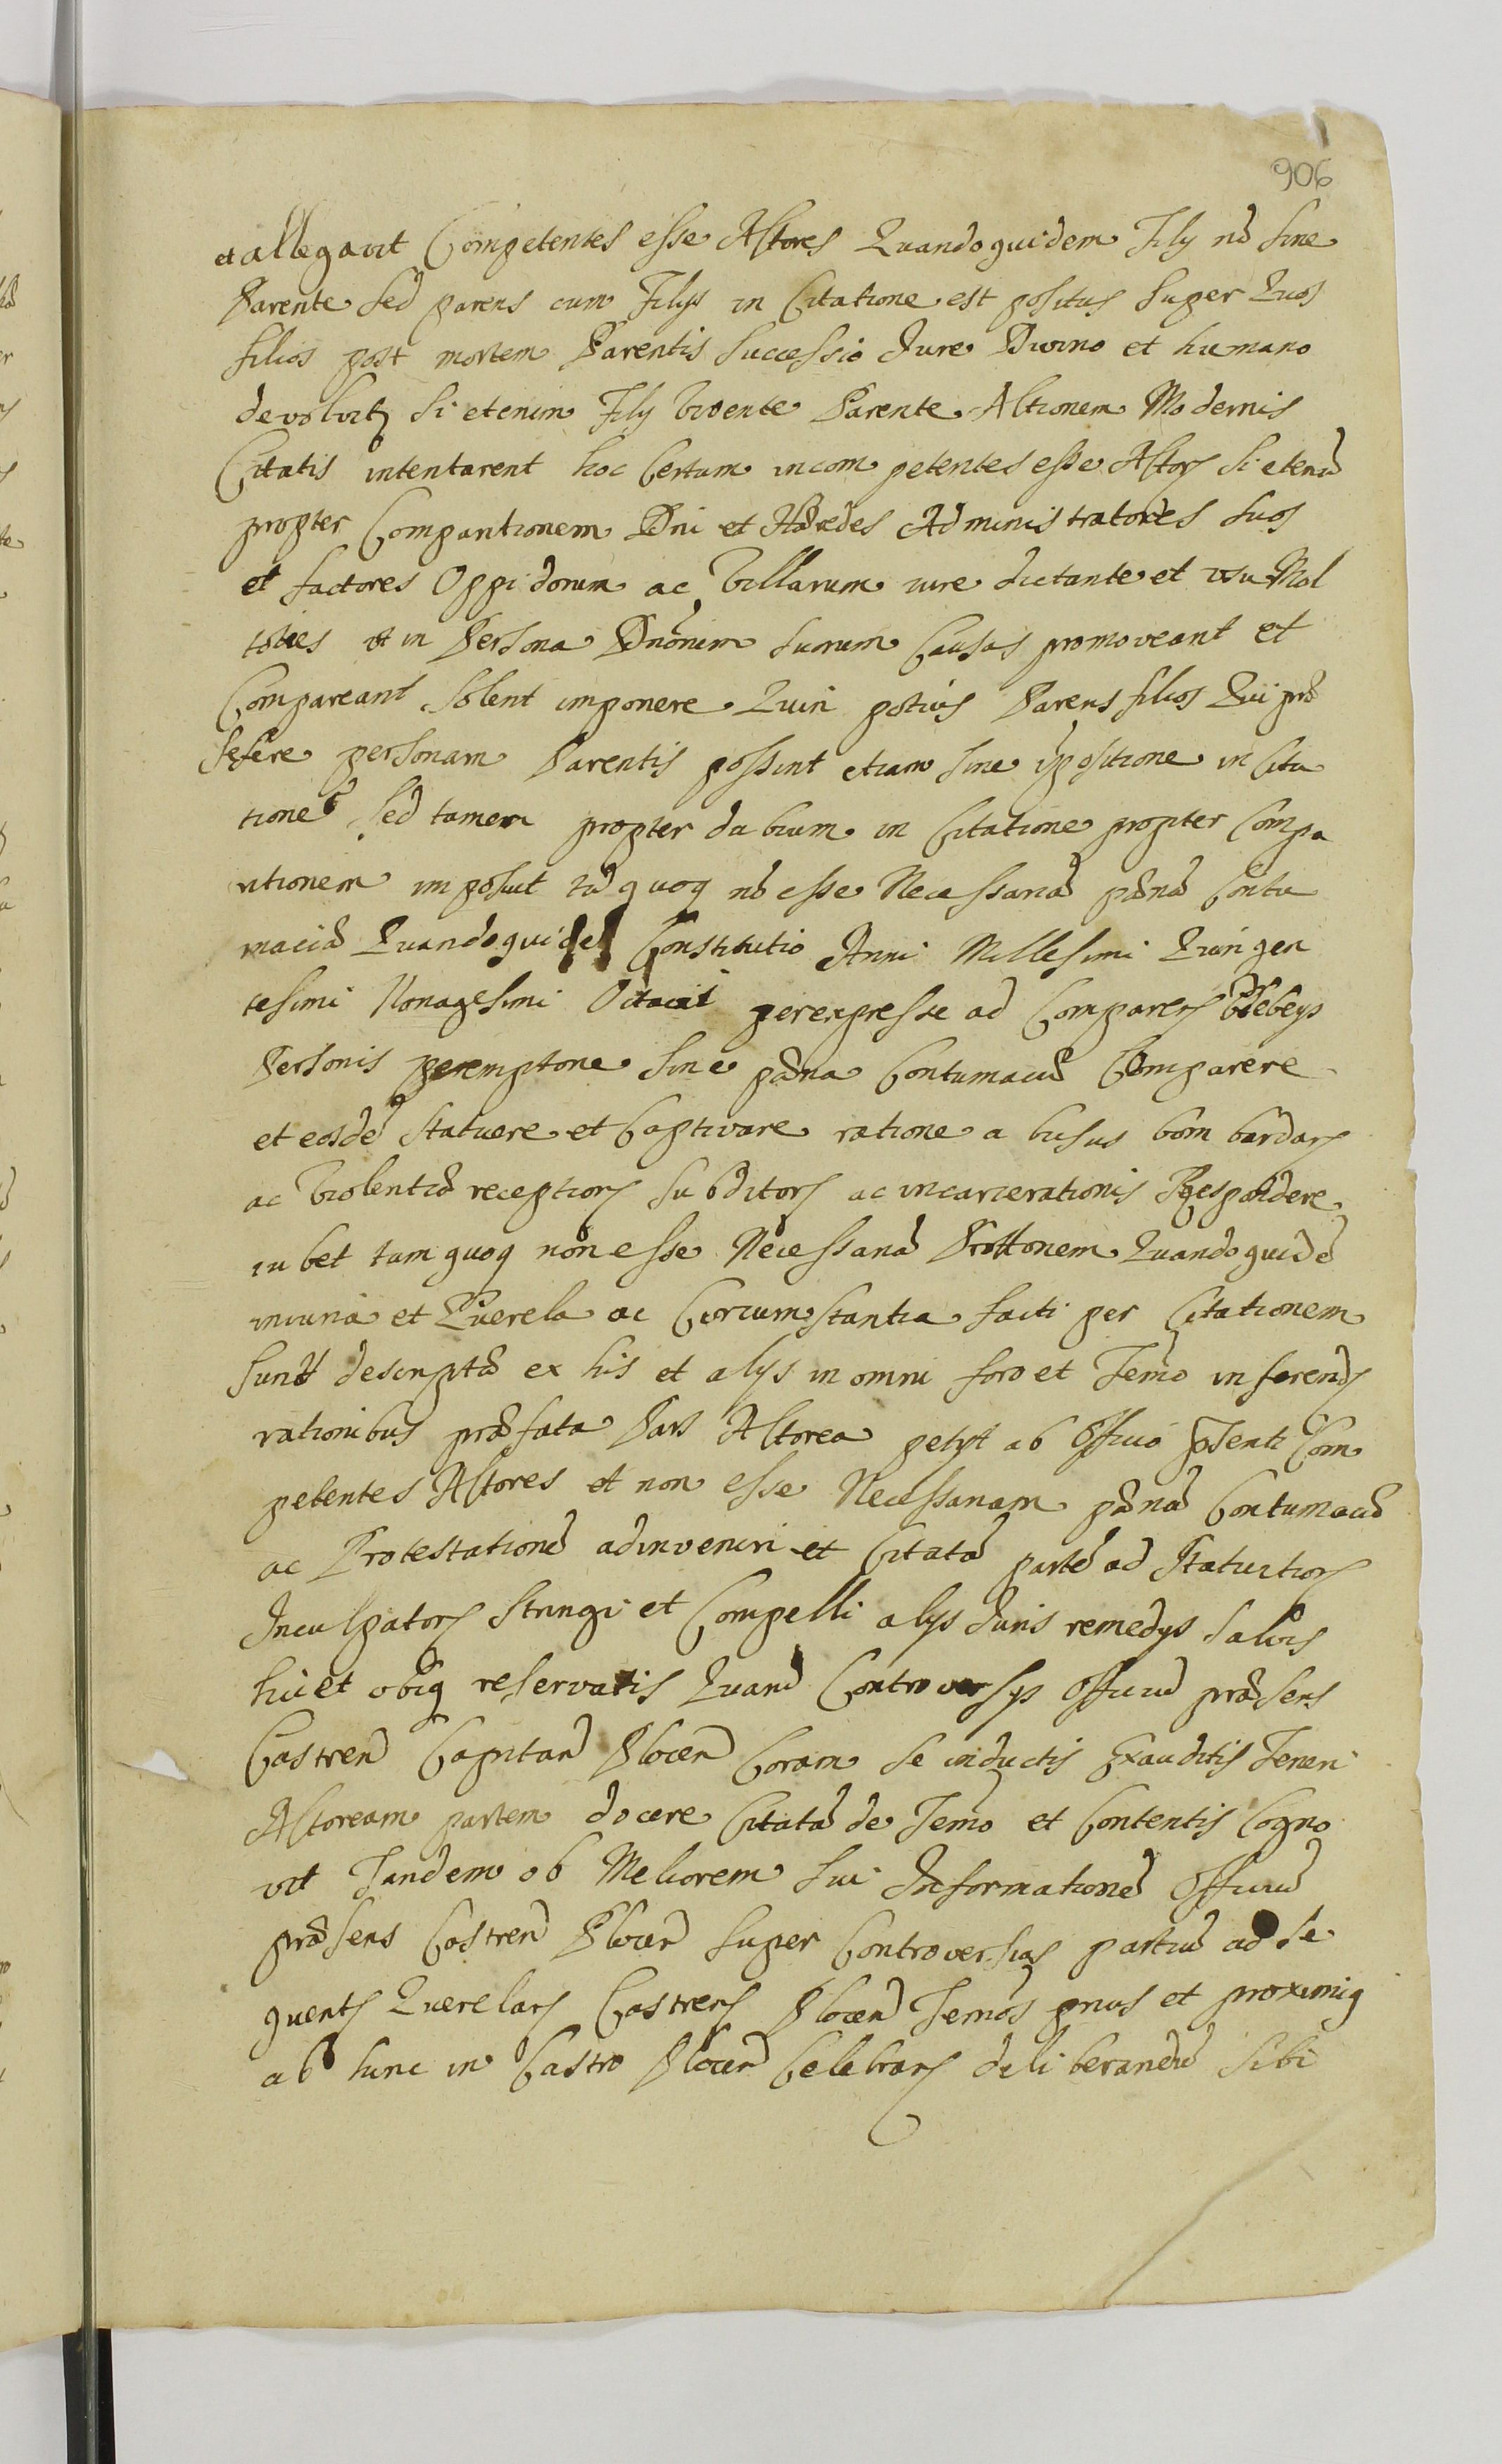 906
et allegavit Competentes esse Actores Quandoquidem Filÿ nō sine
Parente sed parens cum Filÿs in Citatione est positus super Quos
filios post mortem Parentis successio Jure Divino et humano
devolvitʒ si etenim Filÿ vivente Parente Actionem Modernis
Citatis intentarent hoc Certum incompetentes esse Actorʒ si etenī
propter Comparitionem Dni et Hæredes Administratores suos
et factores Oppidorum ac Villarum iure dictante et usu Mol
toties ut in Persona Dnōrum suorum Causas promoveant et
Compareant solent imponere Quin potius Parens filios Qui præ
seferre personam Parentis possint etiam sine īpositione in Cita
tione sed tamen propter dubium in Citatione propter Compa
ritionem imposuit tū quoq nō esse Necessariā pænā Contu
maciæ Quandoquidem Constitutio Anni Millesimi Quingen
tesimi Nonagesimi Octavi perexpresse ad Comparenʒ Plebeys
Personis peremptorie sine pæna Contumaciæ Comparere
et eosdē statuere et Captivare ratione abusus bombardarʒ
ac Violentiæ receptionʒ subditorʒ ac incarcerationis Respondere
iubet tam quoq non esse Necessariā Prottonem Quandoquidē
iniuria et Querela ac Circumstantia facti per Citationem
sunt descripta ex his et alÿs in omni foro et Termō inferendʒ
rationibus præfata Pars Actorea petÿt ab Officio pīsenti Com
petentes Actores et non esse Necessariam pænā Contumaciæ
ac Protestationē adinveniri et Citatā partē ad Statuitionʒ
Inculpatorʒ stringi et Compelli alÿs Juris remedÿs salvis
hic et ubiq reservatis Quarū Controversÿs Officiū præsens
Castren Capitan Plocen Coram se inductis Exauditis Teneri
Actoream partem docere Citatā de Termō et Contentis Cogno
vit Tandem ob Meliorem sui Informationē Officiū
præsens Castren Plocen super Controversias partiū ad se
quentʒ Querelarʒ Castrenʒ Plocen Termōs prius et proximiq
ab hinc in Castro Plocen Celebranʒ deliberandū sibi